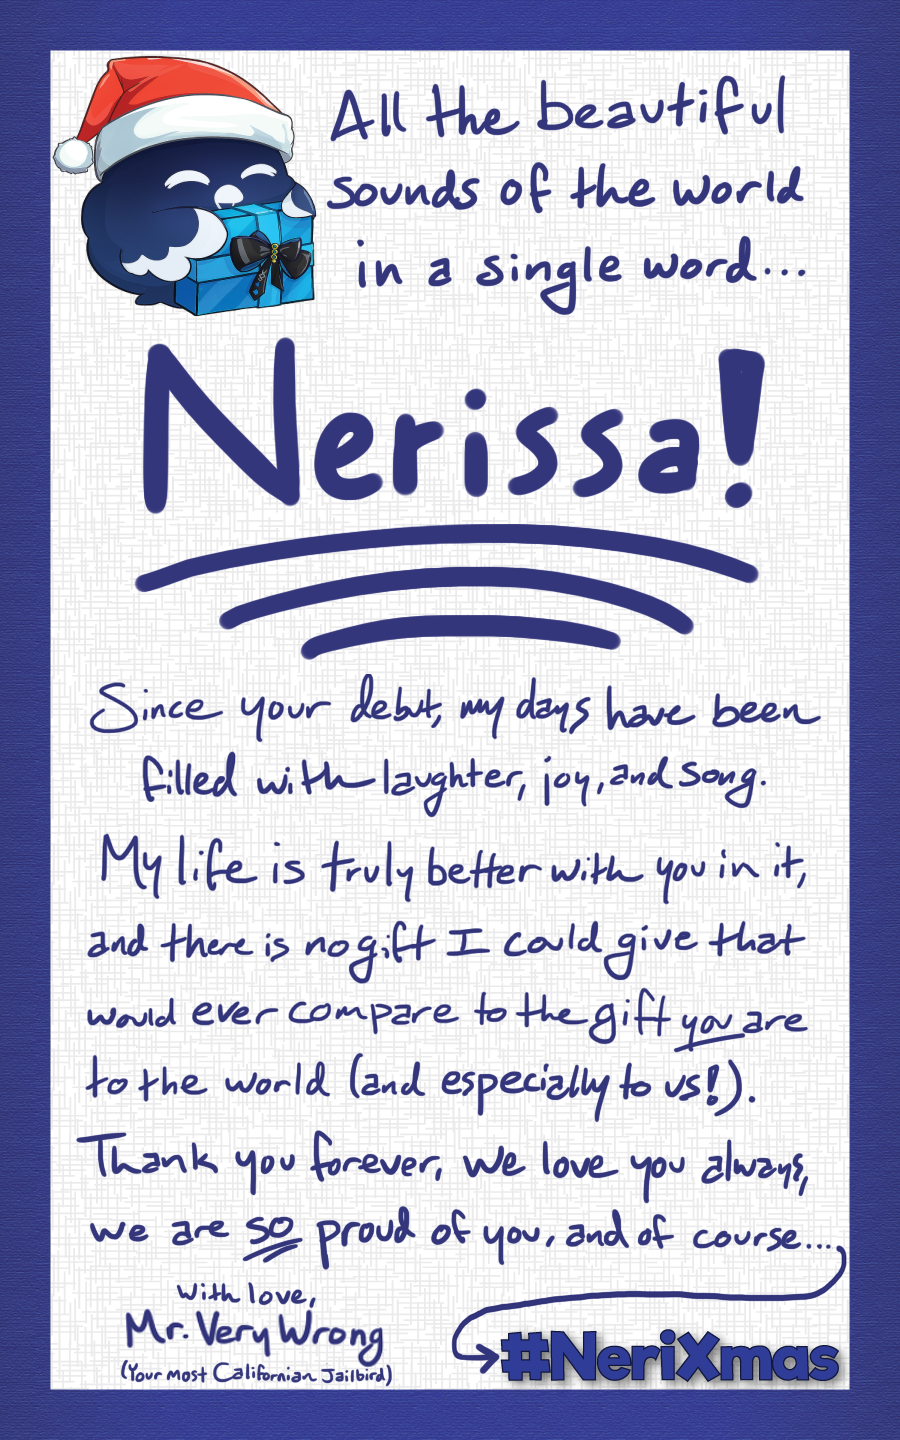 All the beautiful
sounds of the world
in a single word...
Nerissa!
Since your debut, my days have been
filled with laughter, joy, and song.
My life is truly better with you in it,
and there is no gift I could give that
would ever compare to the gift you are
to the world (and especially to us!).
Thank you forever, we love you always,
we are so proud of you, and of course...
With love,
Mr. Very Wrong
(Your most Californian Jailbird)
#NeriXmas